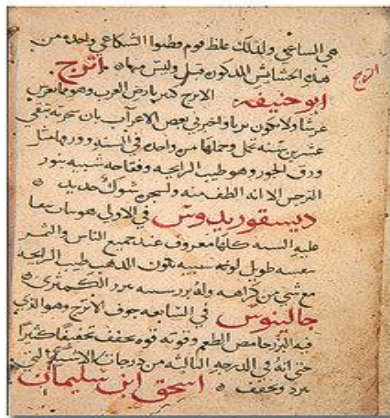 هي الساعي ولذلك غلط قوم فظنوا الشكاعي واحده من
هذه الحشايش المذكوره قبل وليس منها ه اترج
ابو حنيفه الاترج كثير بارض العرب وهو مما يغرس
غرسا ولا يكون بريا واخبرني بعض الاعراب بان شجرته تبقي
عشرين سنه تحمل وحملها مره واحده في السنه وورقها مثل
ورق الجوز وهو طيب الرايحه وفقاحه شبيه بنور
النرجس الا انه الطف منه ولشجره شوك حديد ه
ديسقوريدوس في الاولي هو نبات تبقا
عليه السنه كلها معروف عند جميع الناس والثمر
نفسه طويل لونه شبيه بلون الذهب طيب الرايحه
مع شي من كراهه وله بزر شبيه ببزر الكمثري ه
جالينوس في السابعه جوف الاترج وهو الذي
فيه البزر حامض الطعم وقوته قوه تجفف تجفيفا كثيرا
حتي انه في الدرجه الثالثه من درجات الاشيا التي
تبرد وتجفف ه اسحق ابن سليمان
اترج